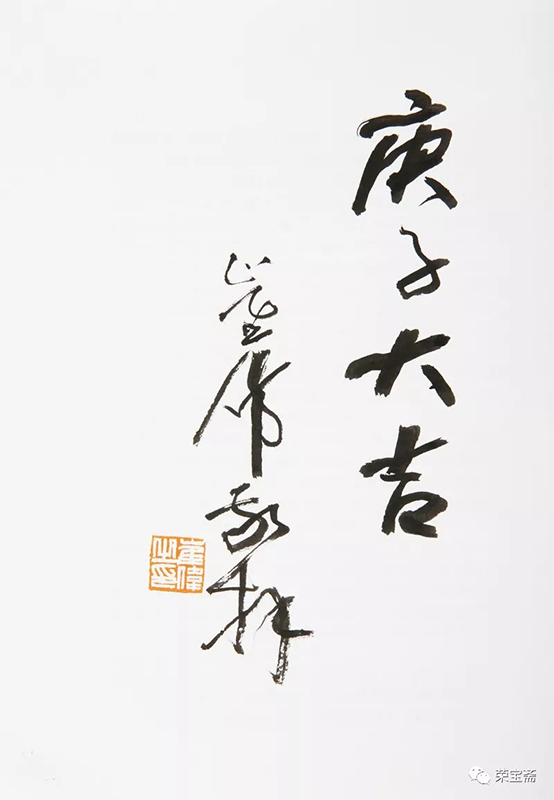 庚子大吉
崔伟敬拜
崔偉之印
荣宝斋